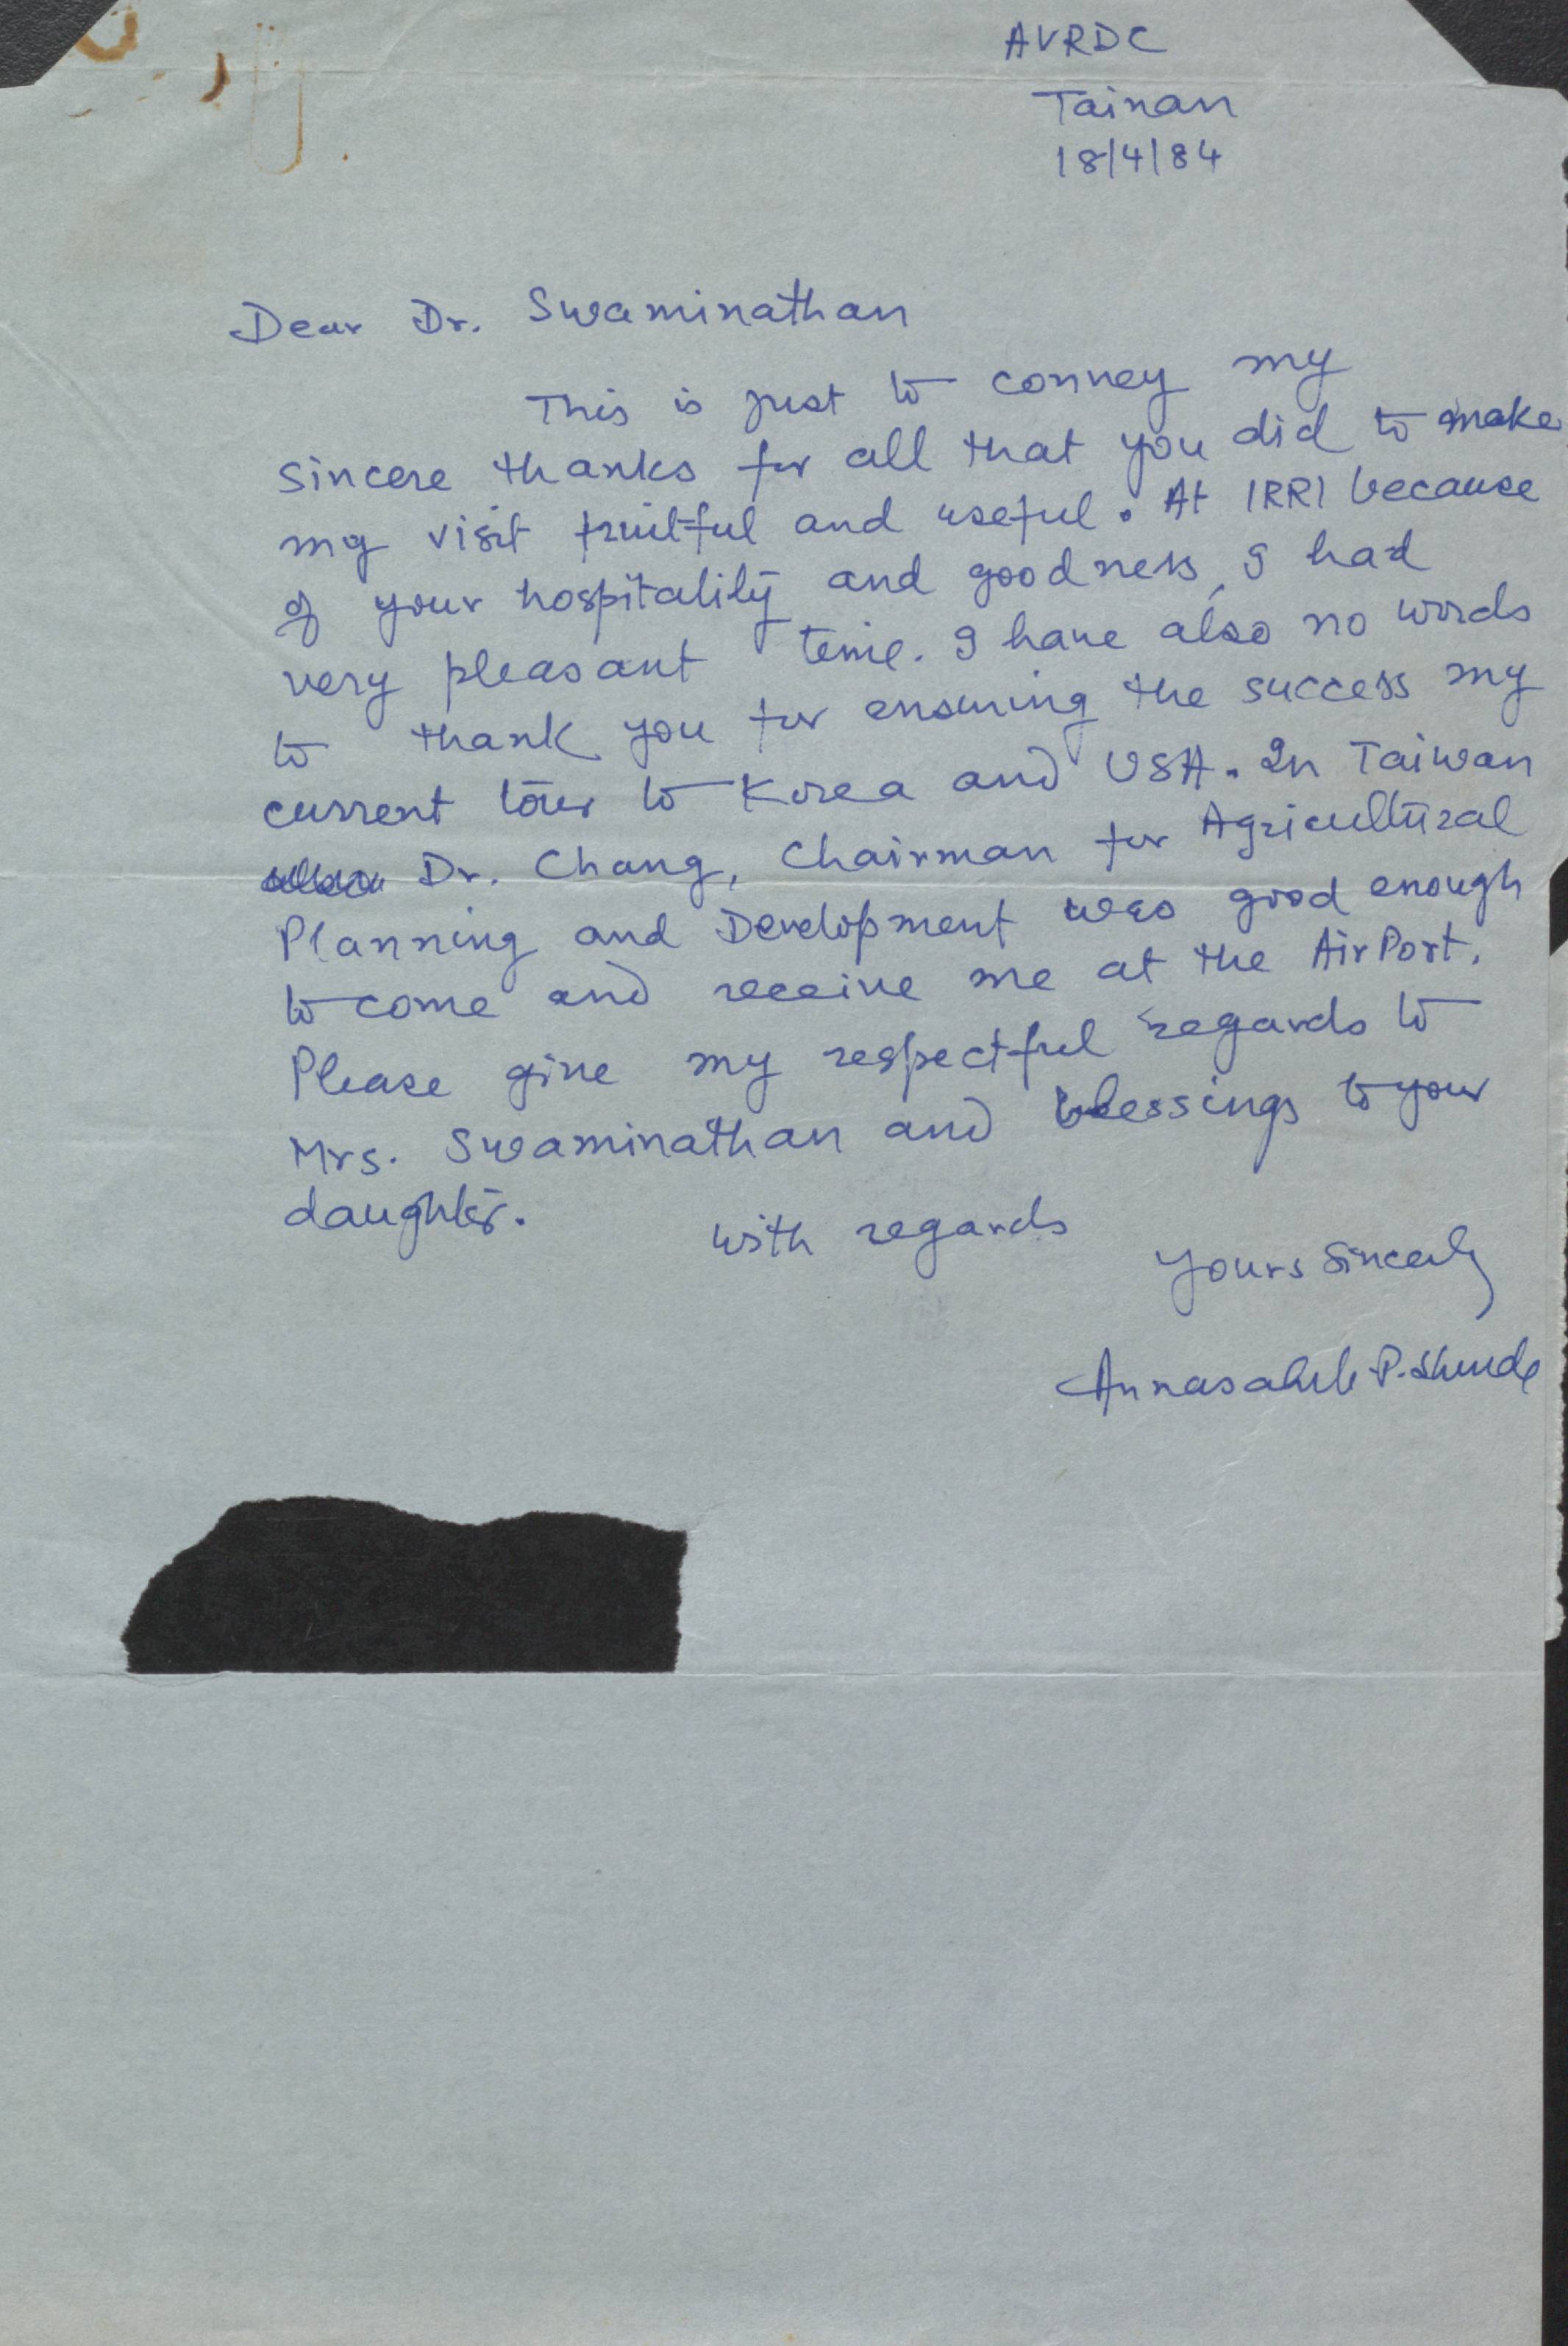 AVRDC
Tainan
18/4/84
Dear Dr. Swaminathan
This is just to convey my
sincere thanks for all that you did to make
my visit fruitful and useful. At IRRI because
of your hospitality and goodness, I had
very pleasant time. I have also no words
to thank you for ensuring the success my
current tour to Korea and USA. In Taiwan
Dr. Chang, Chairman for Agricultural
Planning and Development was good enough
to come and receive me at the AirPort.
Please give my respectful regards to
Mrs. Swaminathan and blessings to your
daughter.
with regards
Yours Sincerly
Annasaheb P. Shinde